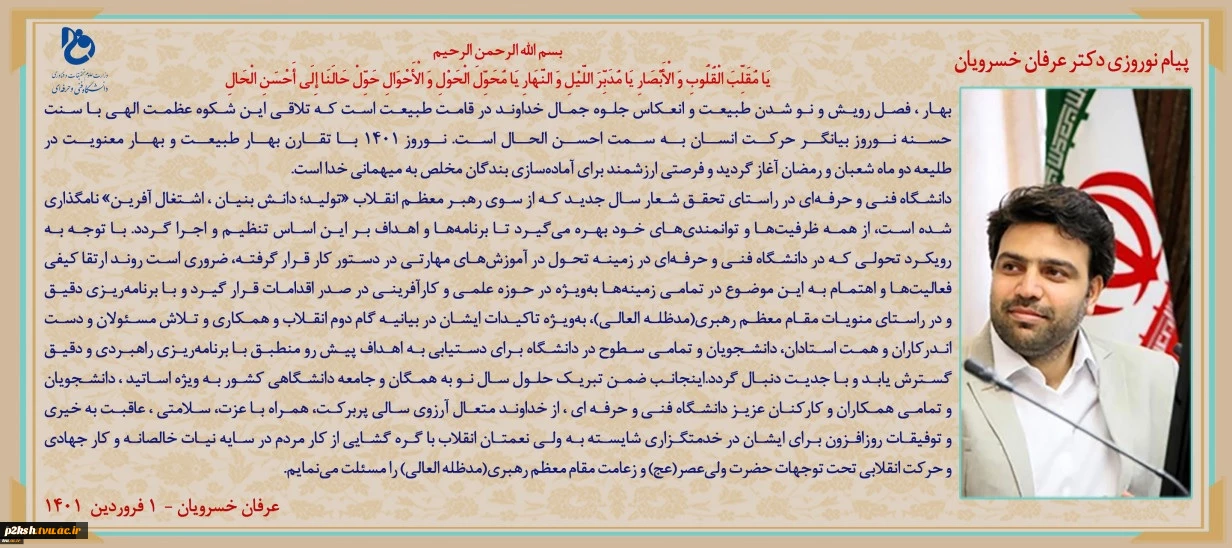 پیام نوروزی دکتر عرفان خسرویان
وزارت علوم تحقیقات و فناوری
دانشگاه فنی و حرفه‌ای
بسم الله الرحمن الرحیم
یَا مُقَلِّبَ الْقُلُوبِ وَ الْأَبْصَارِ یَا مُدَبِّرَ اللَّیْلِ وَ النَّهَارِ یَا مُحَوِّلَ الْحَوْلِ وَ الْأَحْوَالِ حَوِّلْ حَالَنَا إِلَی أَحْسَنِ الْحَالِ
بهار ، فصل رویش و نو شدن طبیعت و انعکاس جلوه جمال خداوند در قامت طبیعت است که تلاقی این شکوه عظمت الهی با سنت
حسنه نوروز بیانگر حرکت انسان به سمت احسن الحال است. نوروز ۱۴۰۱ با تقارن بهار طبیعت و بهار معنویت در
طلیعه دو ماه شعبان و رمضان آغاز گردید و فرصتی ارزشمند برای آماده‌سازی بندگان مخلص به میهمانی خدا است.
دانشگاه فنی و حرفه‌ای در راستای تحقق شعار سال جدید که از سوی رهبر معظم انقلاب «تولید؛ دانش بنیان ، اشتغال آفرین» نامگذاری
شده است، از همه ظرفیت‌ها و توانمندی‌های خود بهره می‌گیرد تا برنامه‌ها و اهداف بر این اساس تنظیم و اجرا گردد. با توجه به
رویکرد تحولی که در دانشگاه فنی و حرفه‌ای در زمینه تحول در آموزش‌های مهارتی در دستور کار قرار گرفته، ضروری است روند ارتقا کیفی
فعالیت‌ها و اهتمام به این موضوع در تمامی زمینه‌ها به‌ویژه در حوزه علمی و کارآفرینی در صدر اقدامات قرار گیرد و با برنامه‌ریزی دقیق
و در راستای منویات مقام معظم رهبری(مدظله العالی)، به‌ویژه تاکیدات ایشان در بیانیه گام دوم انقلاب و همکاری و تلاش مسئولان و دست
اندرکاران و همت استادان، دانشجویان و تمامی سطوح در دانشگاه برای دستیابی به اهداف پیش رو منطبق با برنامه‌ریزی راهبردی و دقیق
گسترش یابد و با جدیت دنبال گردد.اینجانب ضمن تبریک حلول سال نو به همگان و جامعه دانشگاهی کشور به ویژه اساتید ، دانشجویان
و تمامی همکاران و کارکنان عزیز دانشگاه فنی و حرفه ای ، از خداوند متعال آرزوی سالی پربرکت، همراه با عزت، سلامتی ، عاقبت به خیری
و توفیقات روزافزون برای ایشان در خدمتگزاری شایسته به ولی نعمتان انقلاب با گره گشایی از کار مردم در سایه نیات خالصانه و کار جهادی
و حرکت انقلابی تحت توجهات حضرت ولی‌عصر(عج) و زعامت مقام معظم رهبری(مدظله العالی) را مسئلت می‌نمایم.
عرفان خسرویان - ۱ فروردین ۱۴۰۱
p2ksh.tvu.ac.ir